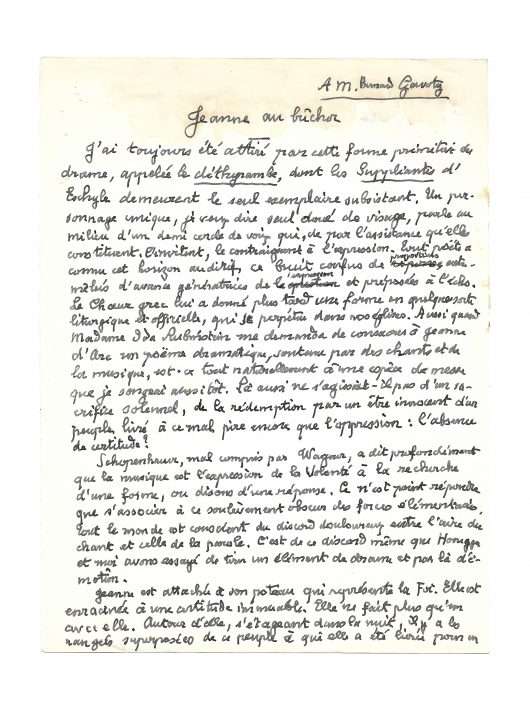 A M. Bernard Gavoty
Jeanne au bûcher
J'ai toujours été attiré par cette forme primitive du
drame, appelée le dithyrambe, dont les Suppliantes d'
Eschyle demeurent le seul exemplaire subsistant. Un per-
sonnage unique, je veux dire seul doué de visage, parle au
milieu d'un demi cercle de voix qui, de par l'assistance qu'elles
constituent, l'invitent, le contraignent à l'expression. Tout poète a
connu cet horizon auditif, ce bruit confus de propositions
mêlées d'avance génératrices de l'expression et préposées à l'écho.
Le Chœur grec lui a donné plus tard une forme en quelque sorte
liturgique et officielle, qui se perpétue dans nos églises. Aussi quand
Madame Ida Rubinstein me demanda de consacrer à Jeanne
d'Arc un poème dramatique, soutenu par des chants et de
la musique, est-ce tout naturellement à une espèce de messe
que je songeai aussitôt. Là aussi ne s'agissait-il pas d'un sa-
crifice solennel, de la rédemption par un être innocent d'un
peuple livré à ce mal pire encore que l'oppression : l'absence
de certitude?
Schopenhauer, mal compris par Wagner, a dit profondément
que la musique est l'expression de la Volonté à la recherche
d'une forme, ou disons d'une réponse. Ce n'est point répondre
que s'associer à ce soulèvement obscur des forces élémentaires.
Tout le monde est conscient du discord douloureux entre l'aire du
chant et celle de la parole. C'est de ce discord même que Honegger
et moi avons essayé de tirer un élément de drame et par là d'é-
motion.
Jeanne est attachée à son poteau qui représente la Foi. Elle est
enracinée à une certitude immuable. Elle ne fait plus qu'un
avec elle. Autour d'elle, s'étageant dans la nuit, il y a les
rangées superposées de ce peuple à qui elle a été livrée pour en